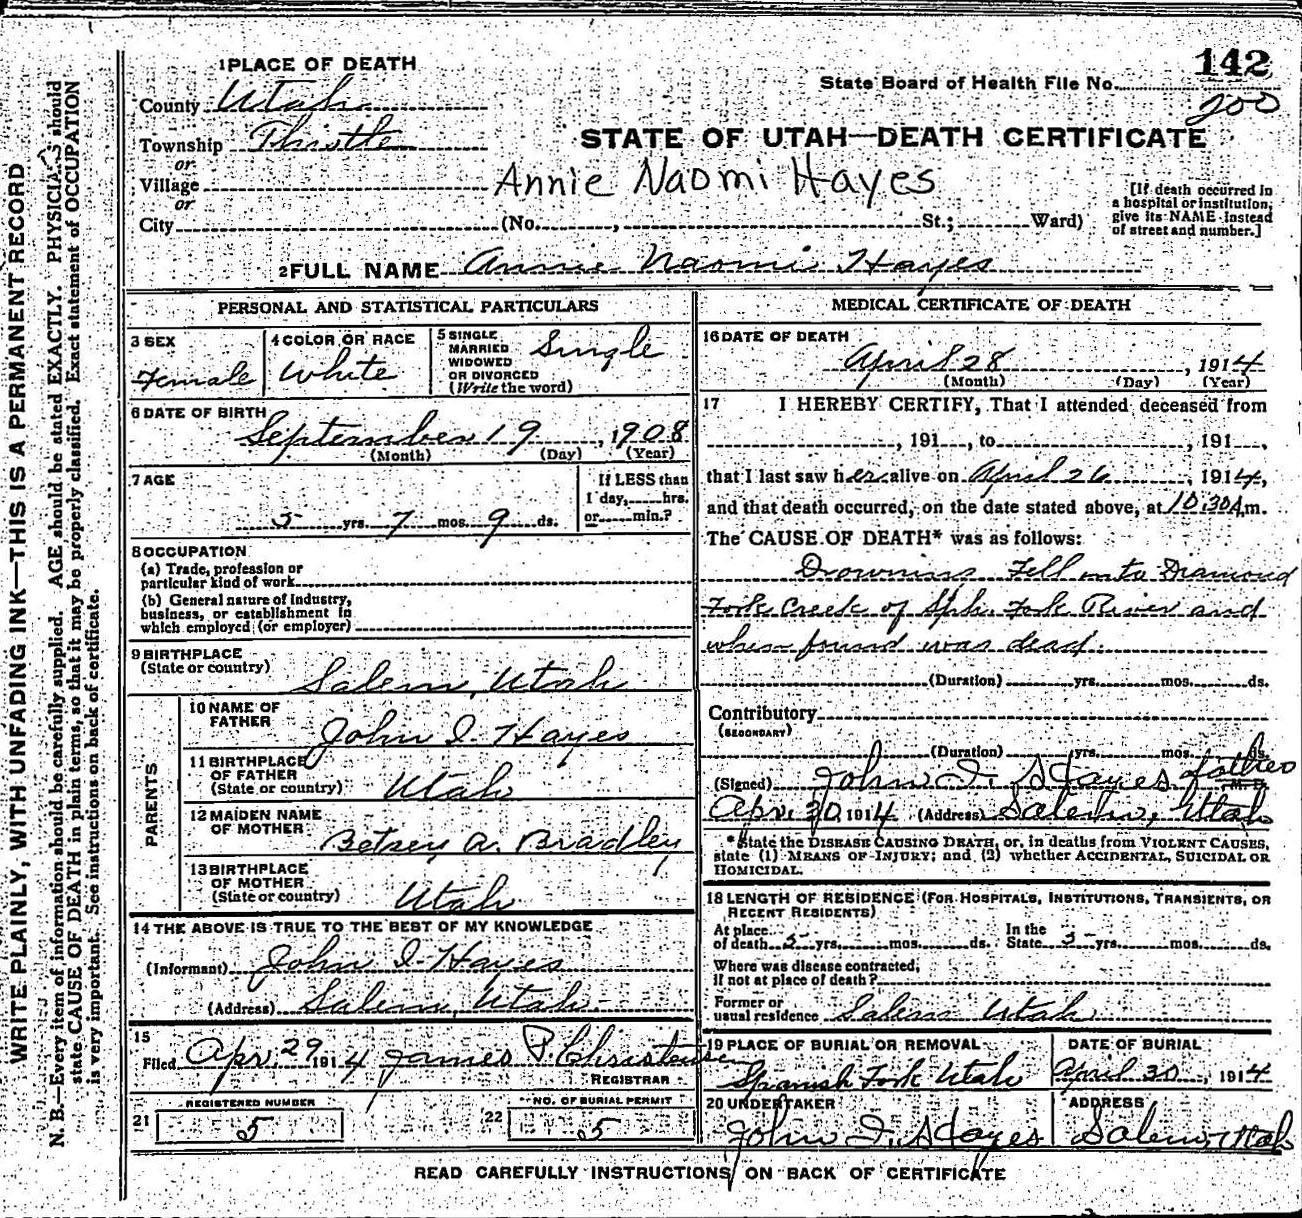 142
State Board of Health File No.
200
1 PLACE OF DEATH
County Utah
Township Thistle
or
Village
or
City
STATE OF UTAH—DEATH CERTIFICATE
Annie Naomi Hayes
(No. , St.; Ward)
[If death occurred in
a hospital or institution,
give its NAME instead
of street and number.]
2 FULL NAME Annie Naomi Hayes
PERSONAL AND STATISTICAL PARTICULARS
3 SEX
Female
4 COLOR OR RACE
White
5 SINGLE
MARRIED
WIDOWED
OR DIVORCED
(Write the word)
Single
6 DATE OF BIRTH
September 19, 1908
(Month) (Day) (Year)
7 AGE
5 yrs. 7 mos. 9 ds.
If LESS than
1 day, hrs.
or min.?
8 OCCUPATION
(a) Trade, profession or
particular kind of work
(b) General nature of industry,
business, or establishment in
which employed (or employer)
9 BIRTHPLACE
(State or country)
Salem, Utah
PARENTS
10 NAME OF
FATHER
John I. Hayes
11 BIRTHPLACE
OF FATHER
(State or country)
Utah
12 MAIDEN NAME
OF MOTHER
Betsey A. Bradley
13 BIRTHPLACE
OF MOTHER
(State or country)
Utah
14 THE ABOVE IS TRUE TO THE BEST OF MY KNOWLEDGE
(Informant) John I. Hayes
(Address) Salem, Utah.
15
Filed Apr. 29 1914 James P. Christensen
REGISTRAR
21 REGISTERED NUMBER
5
22 NO. OF BURIAL PERMIT
5
MEDICAL CERTIFICATE OF DEATH
16 DATE OF DEATH
April 28, 1914
(Month) (Day) (Year)
17 I HEREBY CERTIFY, That I attended deceased from
, 191 , to , 191 ,
that I last saw her alive on April 26, 1914,
and that death occurred, on the date stated above, at 10:30 A.m.
The CAUSE OF DEATH* was as follows:
Drowning Fell into Diamond
Fork Creek of Sph. Fork River and
when found was dead.
(Duration) yrs. mos. ds.
Contributory
(SECONDARY)
(Duration) yrs. mos. ds.
(Signed) John I. Hayes father M. D.
Apr. 30 1914 (Address) Salem, Utah
*State the DISEASE CAUSING DEATH, or, in deaths from VIOLENT CAUSES,
state (1) MEANS OF INJURY; and (2) whether ACCIDENTAL, SUICIDAL OR
HOMICIDAL.
18 LENGTH OF RESIDENCE (FOR HOSPITALS, INSTITUTIONS, TRANSIENTS, OR
RECENT RESIDENTS)
At place
of death 5 yrs. mos. ds.
In the
State 5 yrs. mos. ds.
Where was disease contracted,
if not at place of death?
Former or
usual residence Salem Utah
19 PLACE OF BURIAL OR REMOVAL
Spanish Fork Utah
DATE OF BURIAL
April 30, 1914
20 UNDERTAKER
John I. Hayes
ADDRESS
Salem, Utah
READ CAREFULLY INSTRUCTIONS ON BACK OF CERTIFICATE
WRITE PLAINLY, WITH UNFADING INK—THIS IS A PERMANENT RECORD
N. B.—Every item of information should be carefully supplied. AGE should be stated EXACTLY. PHYSICIANS should
state CAUSE OF DEATH in plain terms, so that it may be properly classified. Exact statement of OCCUPATION
is very important. See instructions on back of certificate.